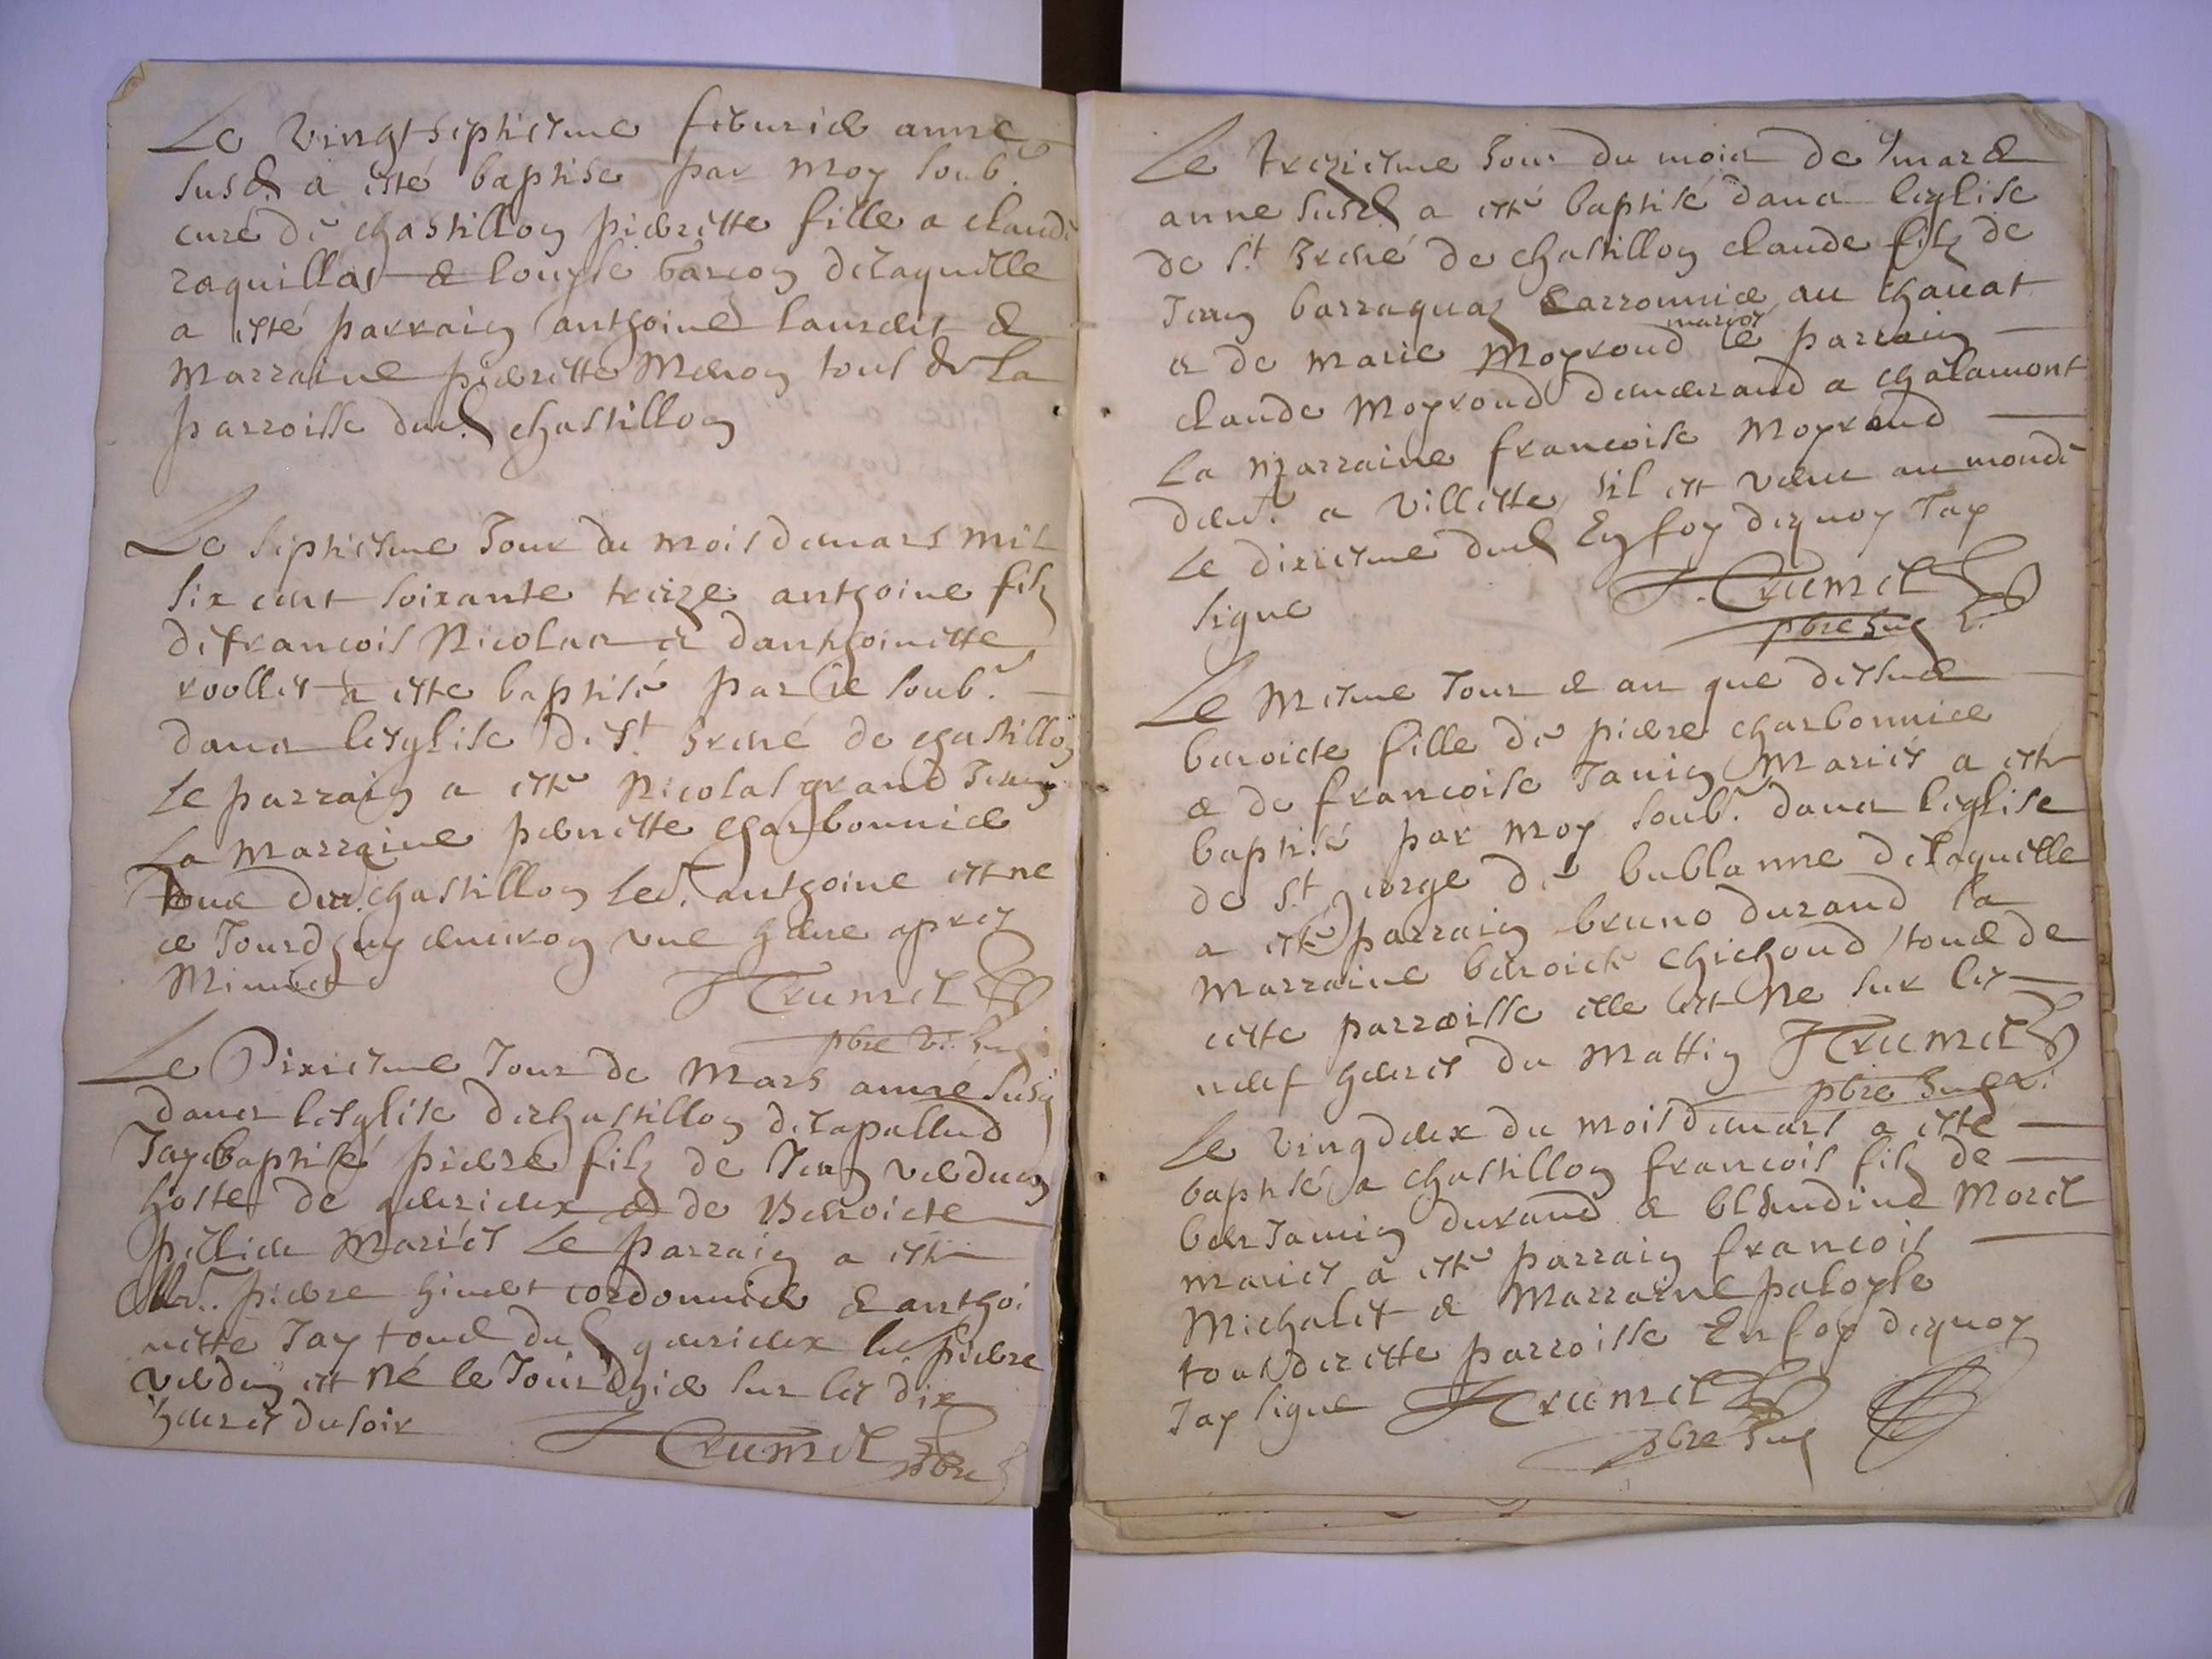 Le vingt septiesme febvrier anne
susd. a esté baptise par moy soub.
curé de chastillon pierrette fille a claude
raquillas & louyse barcon delaquelle
a esté parrain anthoine laurent &
marraine pierrette Meron tous de la
parroisse dud. chastillon
Le septiesme Jour du mois de mars mil
six cent soixante treize anthoine filz
de francois Nicolas et danthoinette
roollet a este baptisé par ie soub.
dans lesglise de St Irené de chastillon
le parrain a esté Nicolas grand Jean
La marraine pernette charbonnier
tous dud. chastillon led. anthoine est ne
ce Jourdhuy environ une heure apres
Minuict J Crumel
pbre vic.
Le Dixiesme Jour de Mars anné susd
dans lesglise de chastillon de lapallud
Jay baptisé pierre filz de Jean verdun
hoste de gevrieux & de Benoicte
pellier Mariés Le parrain a esté
pierre ginet cordonnier & anthoi
nette Jay tous dud gevrieux led pierre
verdun est né le Jour dhier sur les dix
heures du soir
J Crumel pbre
Le treziesme Jour du mois de mars
anne susd a esté baptisé dans leglise
de St Irené de chastillon claude filz de
Jean barraquaz sarronnier au chanat
et de marie Moyroud mariés le parrain
claude Moyroud demeurand a chalamont
La marraine francoise Moyroud
dem. a villette, sil est venu au monde
le dixiesme dud En foy dequoy Jay
signe J. Crumel
pbre
Le Mesme Jour & an que dessus
benoicte fille de pierre charbonnier
& de francoise Janin Mariés a esté
baptisé par moy soub. dans leglise
de St george de bublanne delaquelle
a esté parrain bruno durand la
marraine benoicte chichoud tous de
cette parroisse elle est ne sur les
neuf heures du mattin J Crumel
pbre
Le vingdeux du mois de mars a esté
baptisé a chastillon francois filz de
benjamin durand & blandine Morel
mariés a esté parrain francois
Michalet & Marraine paloyse
tous de cette parroisse En foy dequoy
Jay signe J Crumel
pbre